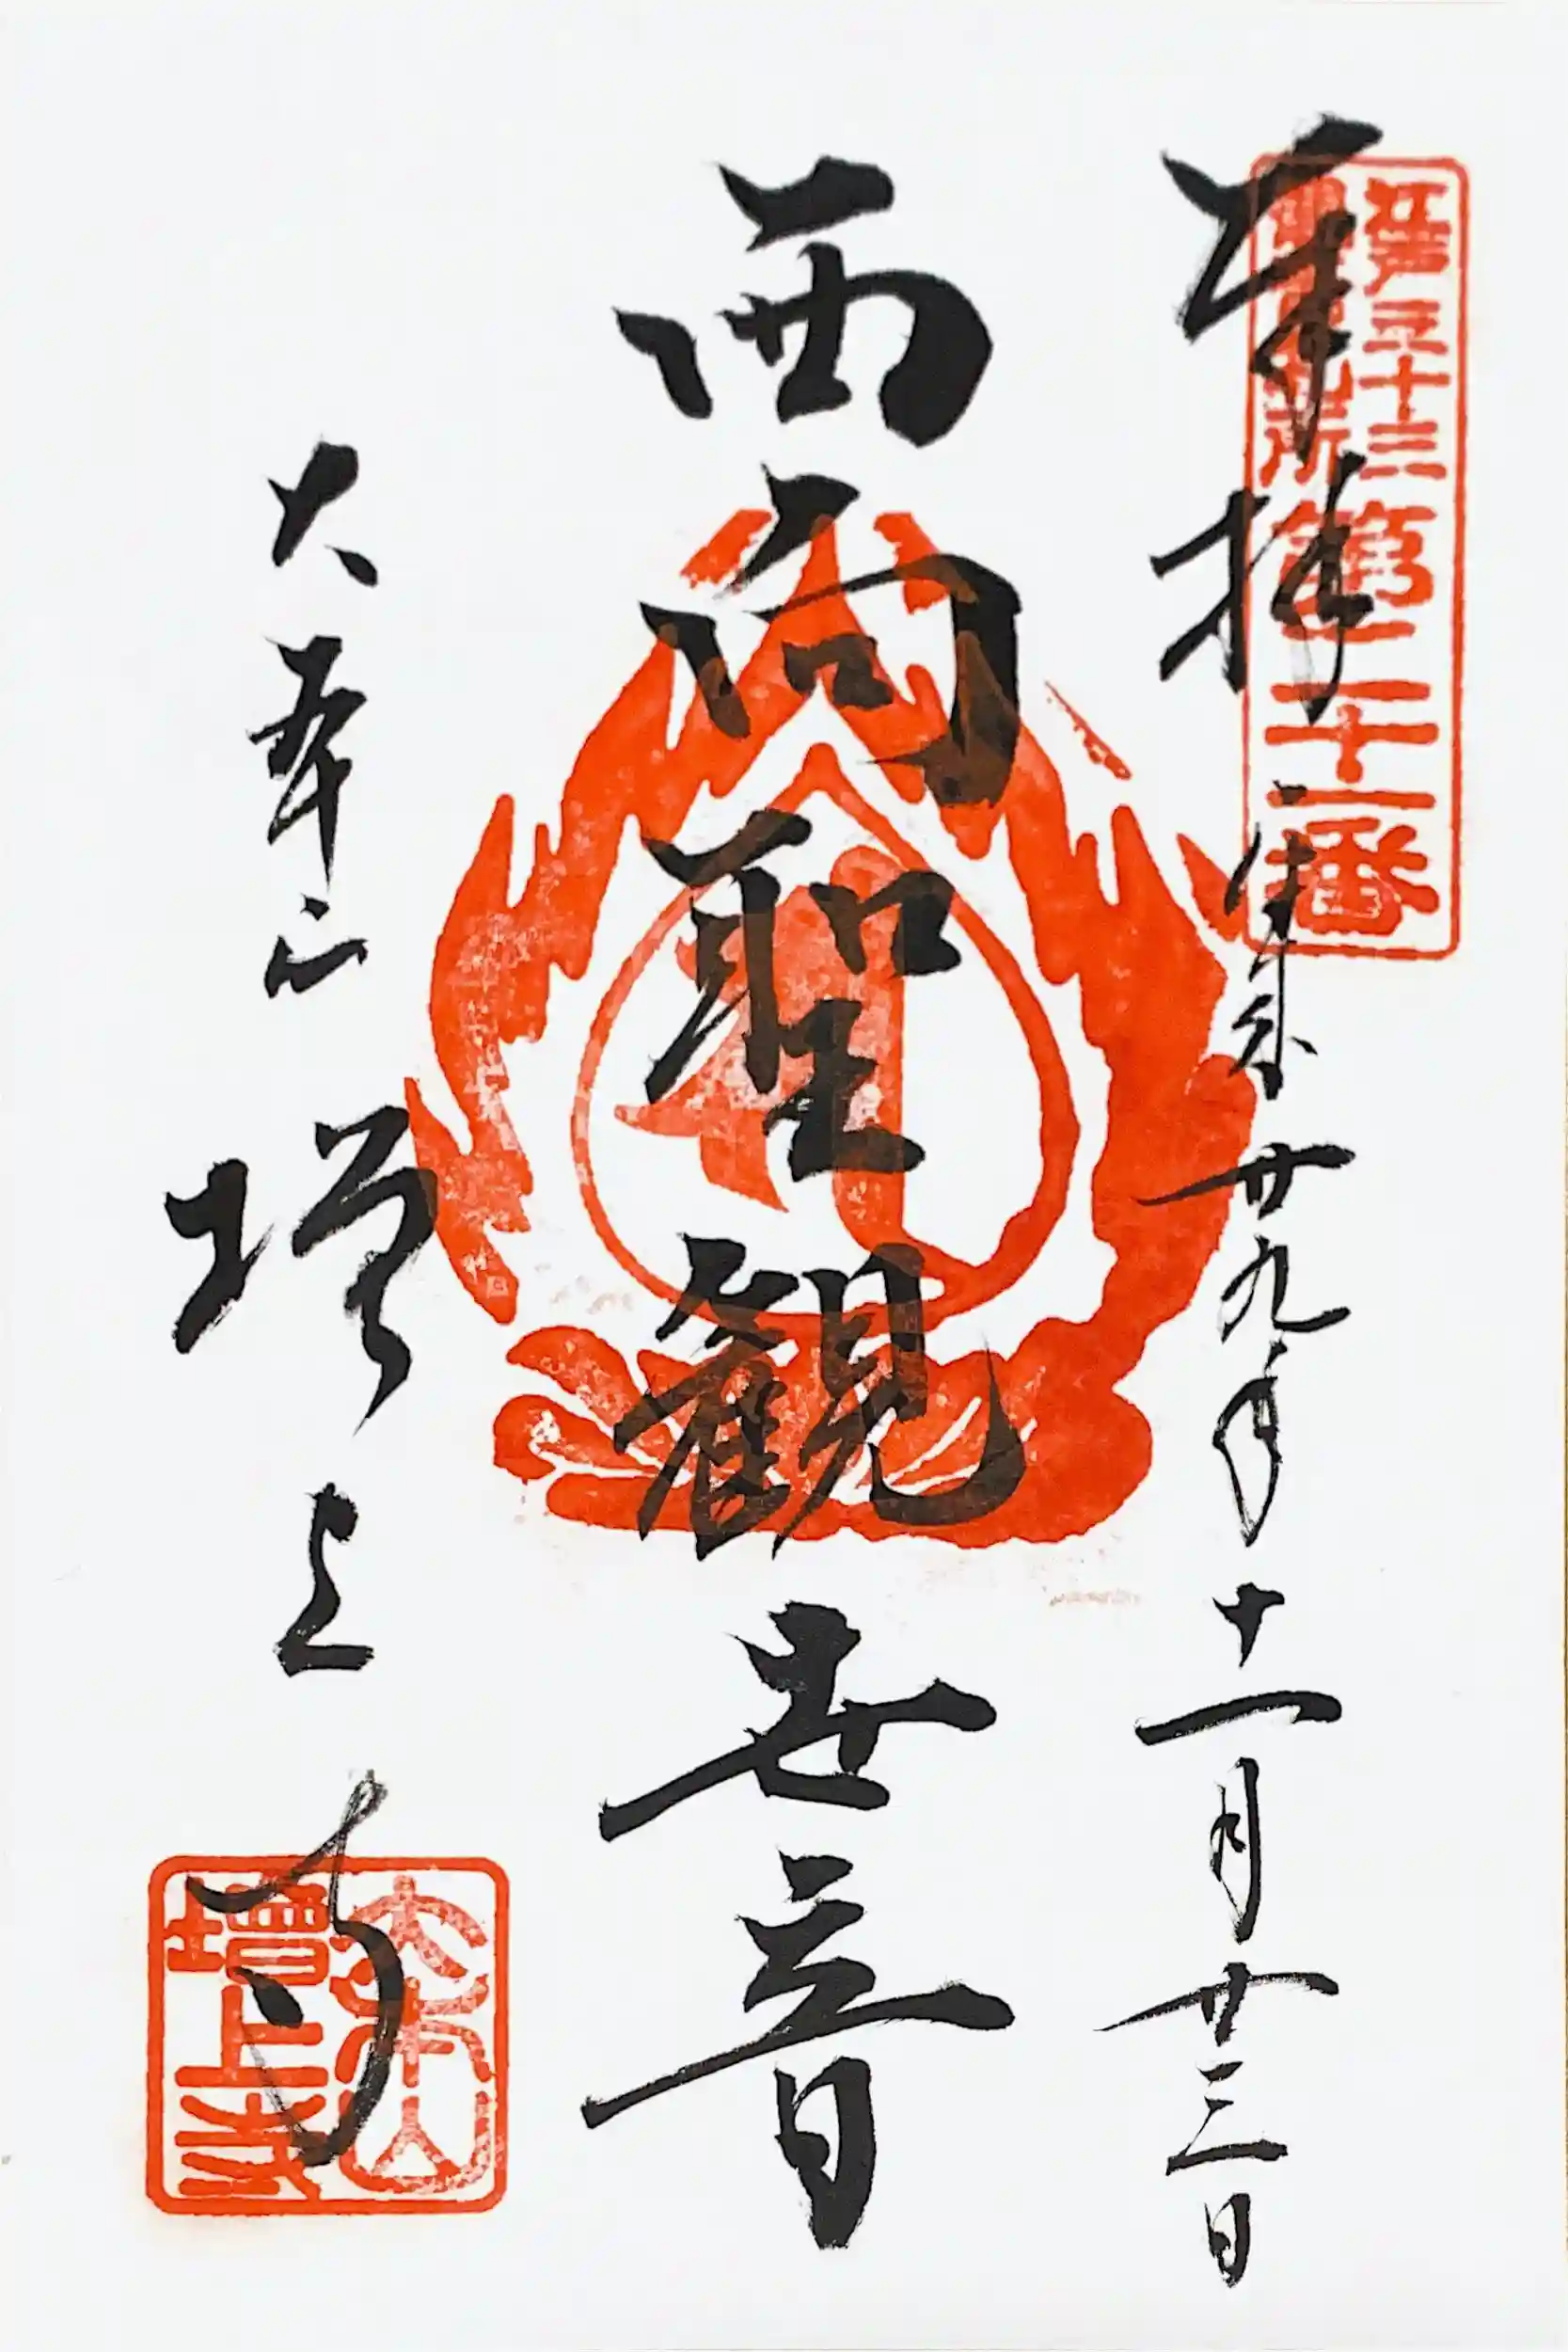 江戸三十三
観音札所
第二十一番
奉拝 平成廿九年十一月廿三日
西向聖観世音
大本山 増上寺
大本山
增上寺